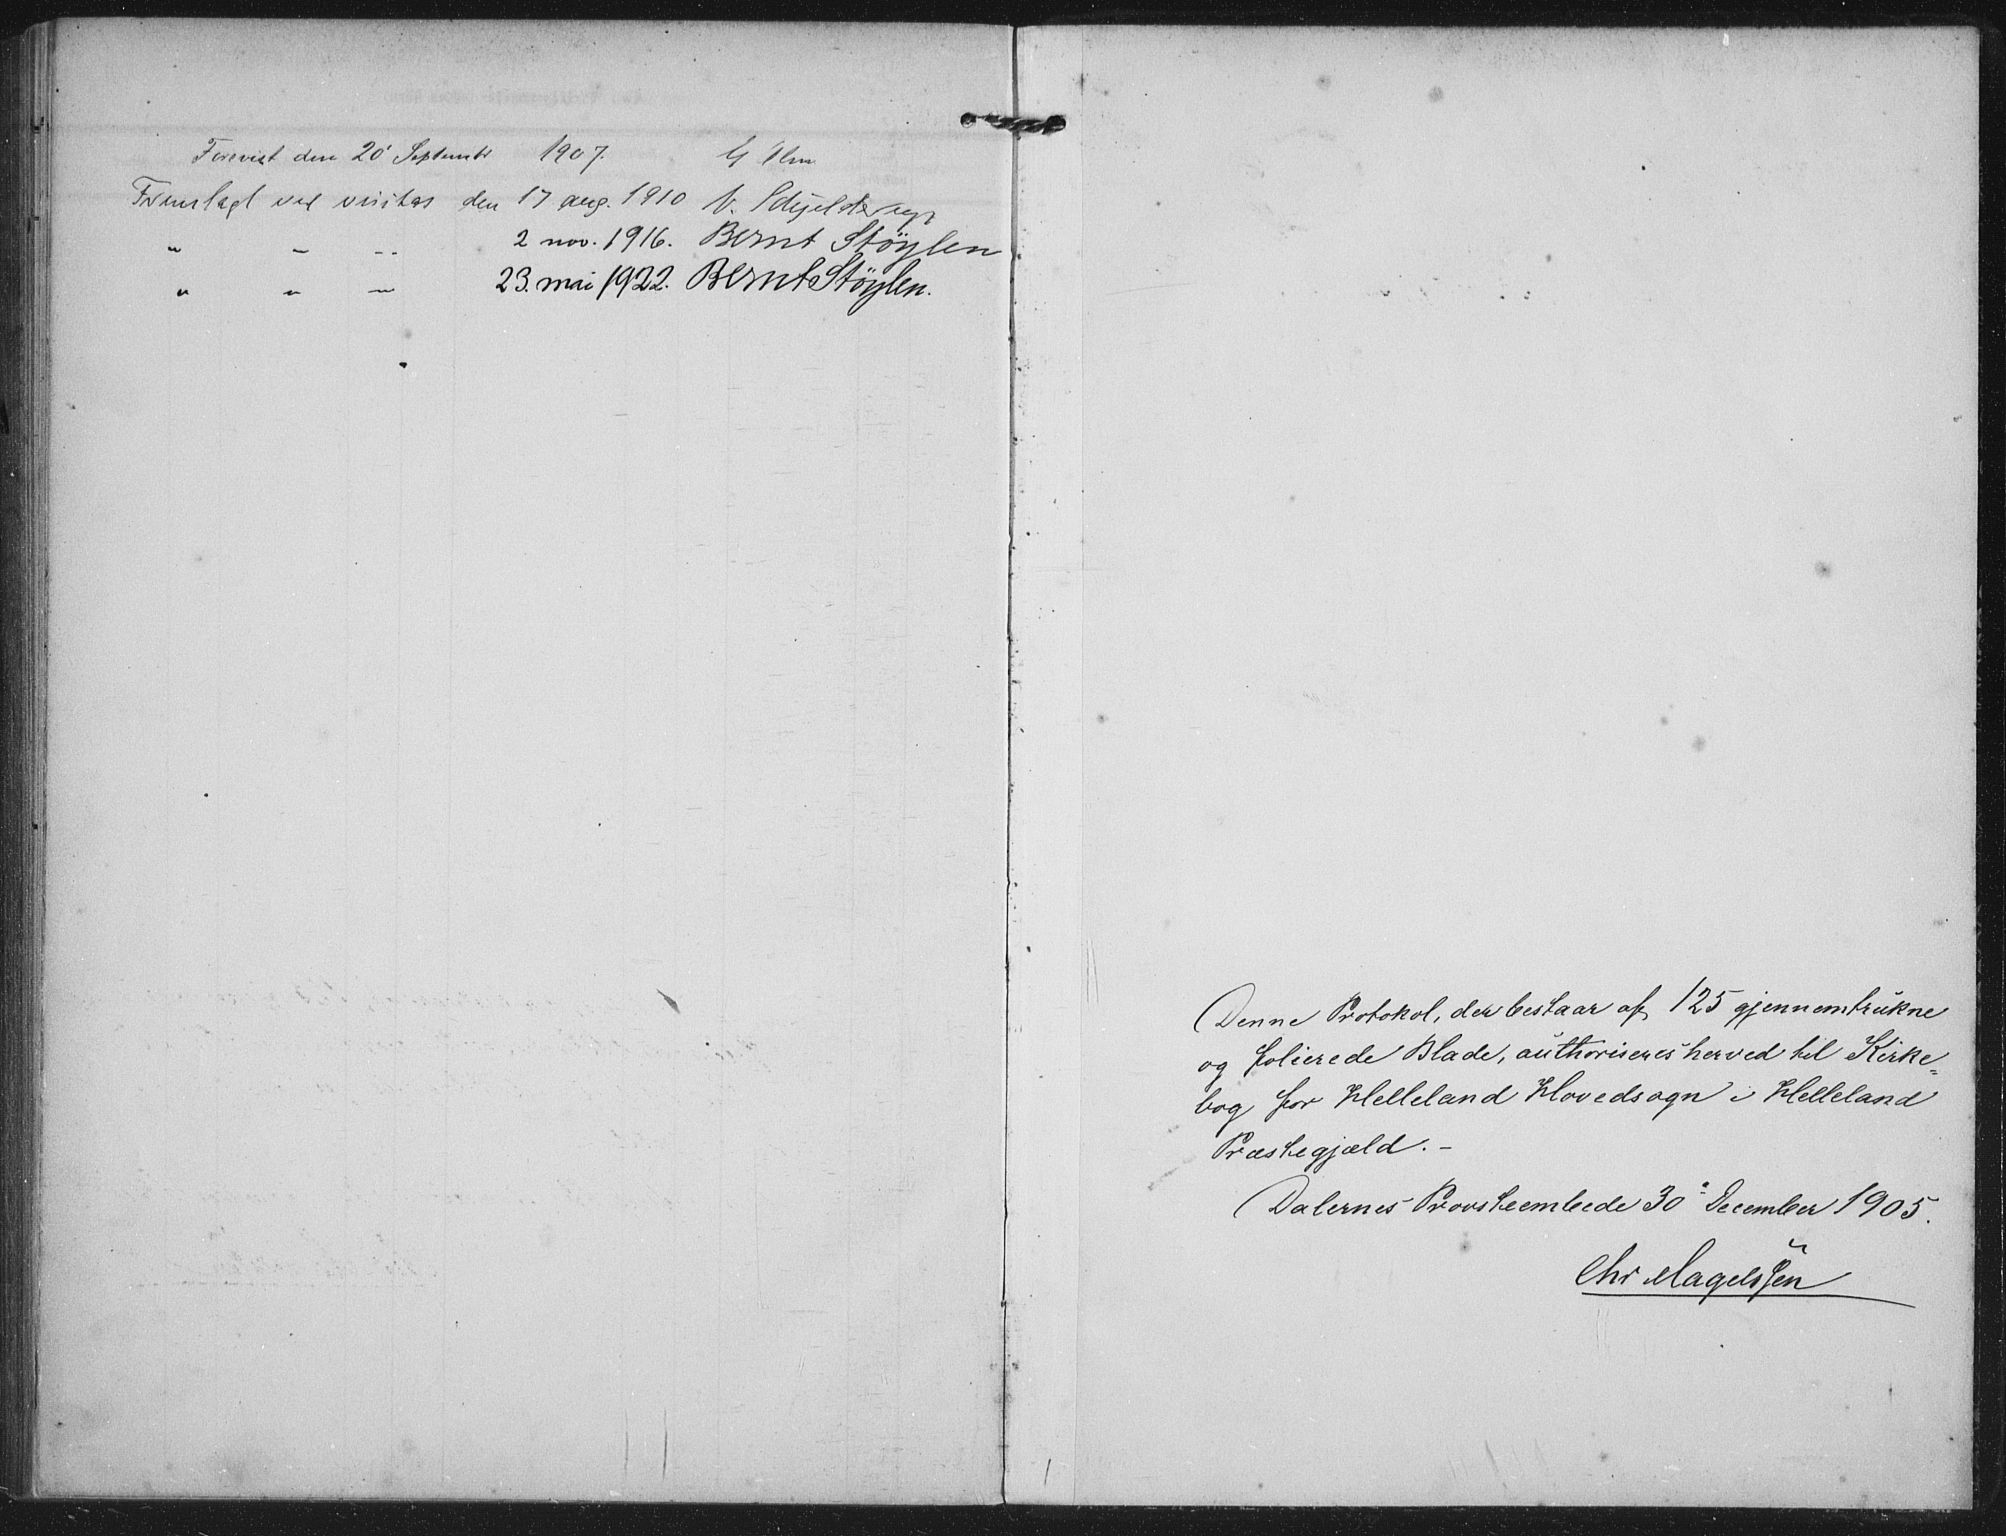 Forevist den 20' Septembr 1907.
Fremlagt ved visitas den 17 aug. 1910 V. Schjelderup
„ – -- 2 nov. 1916. Bernt Støylen
„ „ – 23. mai 1922. Bernt Støylen.
Denne Protokol, der bestaar af 125 gjennemtrukne
og folierede Blade, authoriseres herved til Kirke=
bog for Helleland Hovedsogn i Helleland
Præstegjæld.–
Dalernes Provsteembede 30 December 1905.
Chr Magelssen